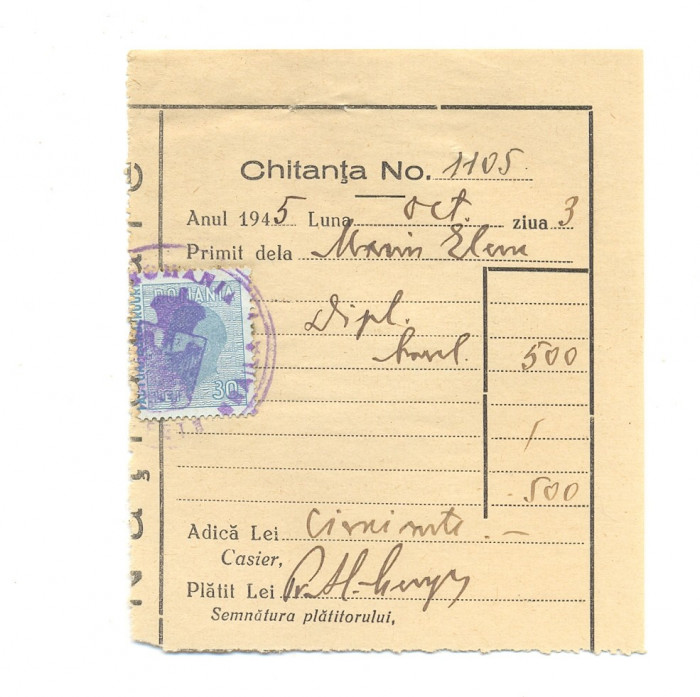 Chitanţa No. 1105
Anul 1945 Luna Oct. ziua 3
Primit dela Marin Elena
ROMANIA
Dipl.
bacal. 500
30
LEI
500
Adică Lei Cincisute. —
Casier,
Plătit Lei
Semnătura plătitorului,